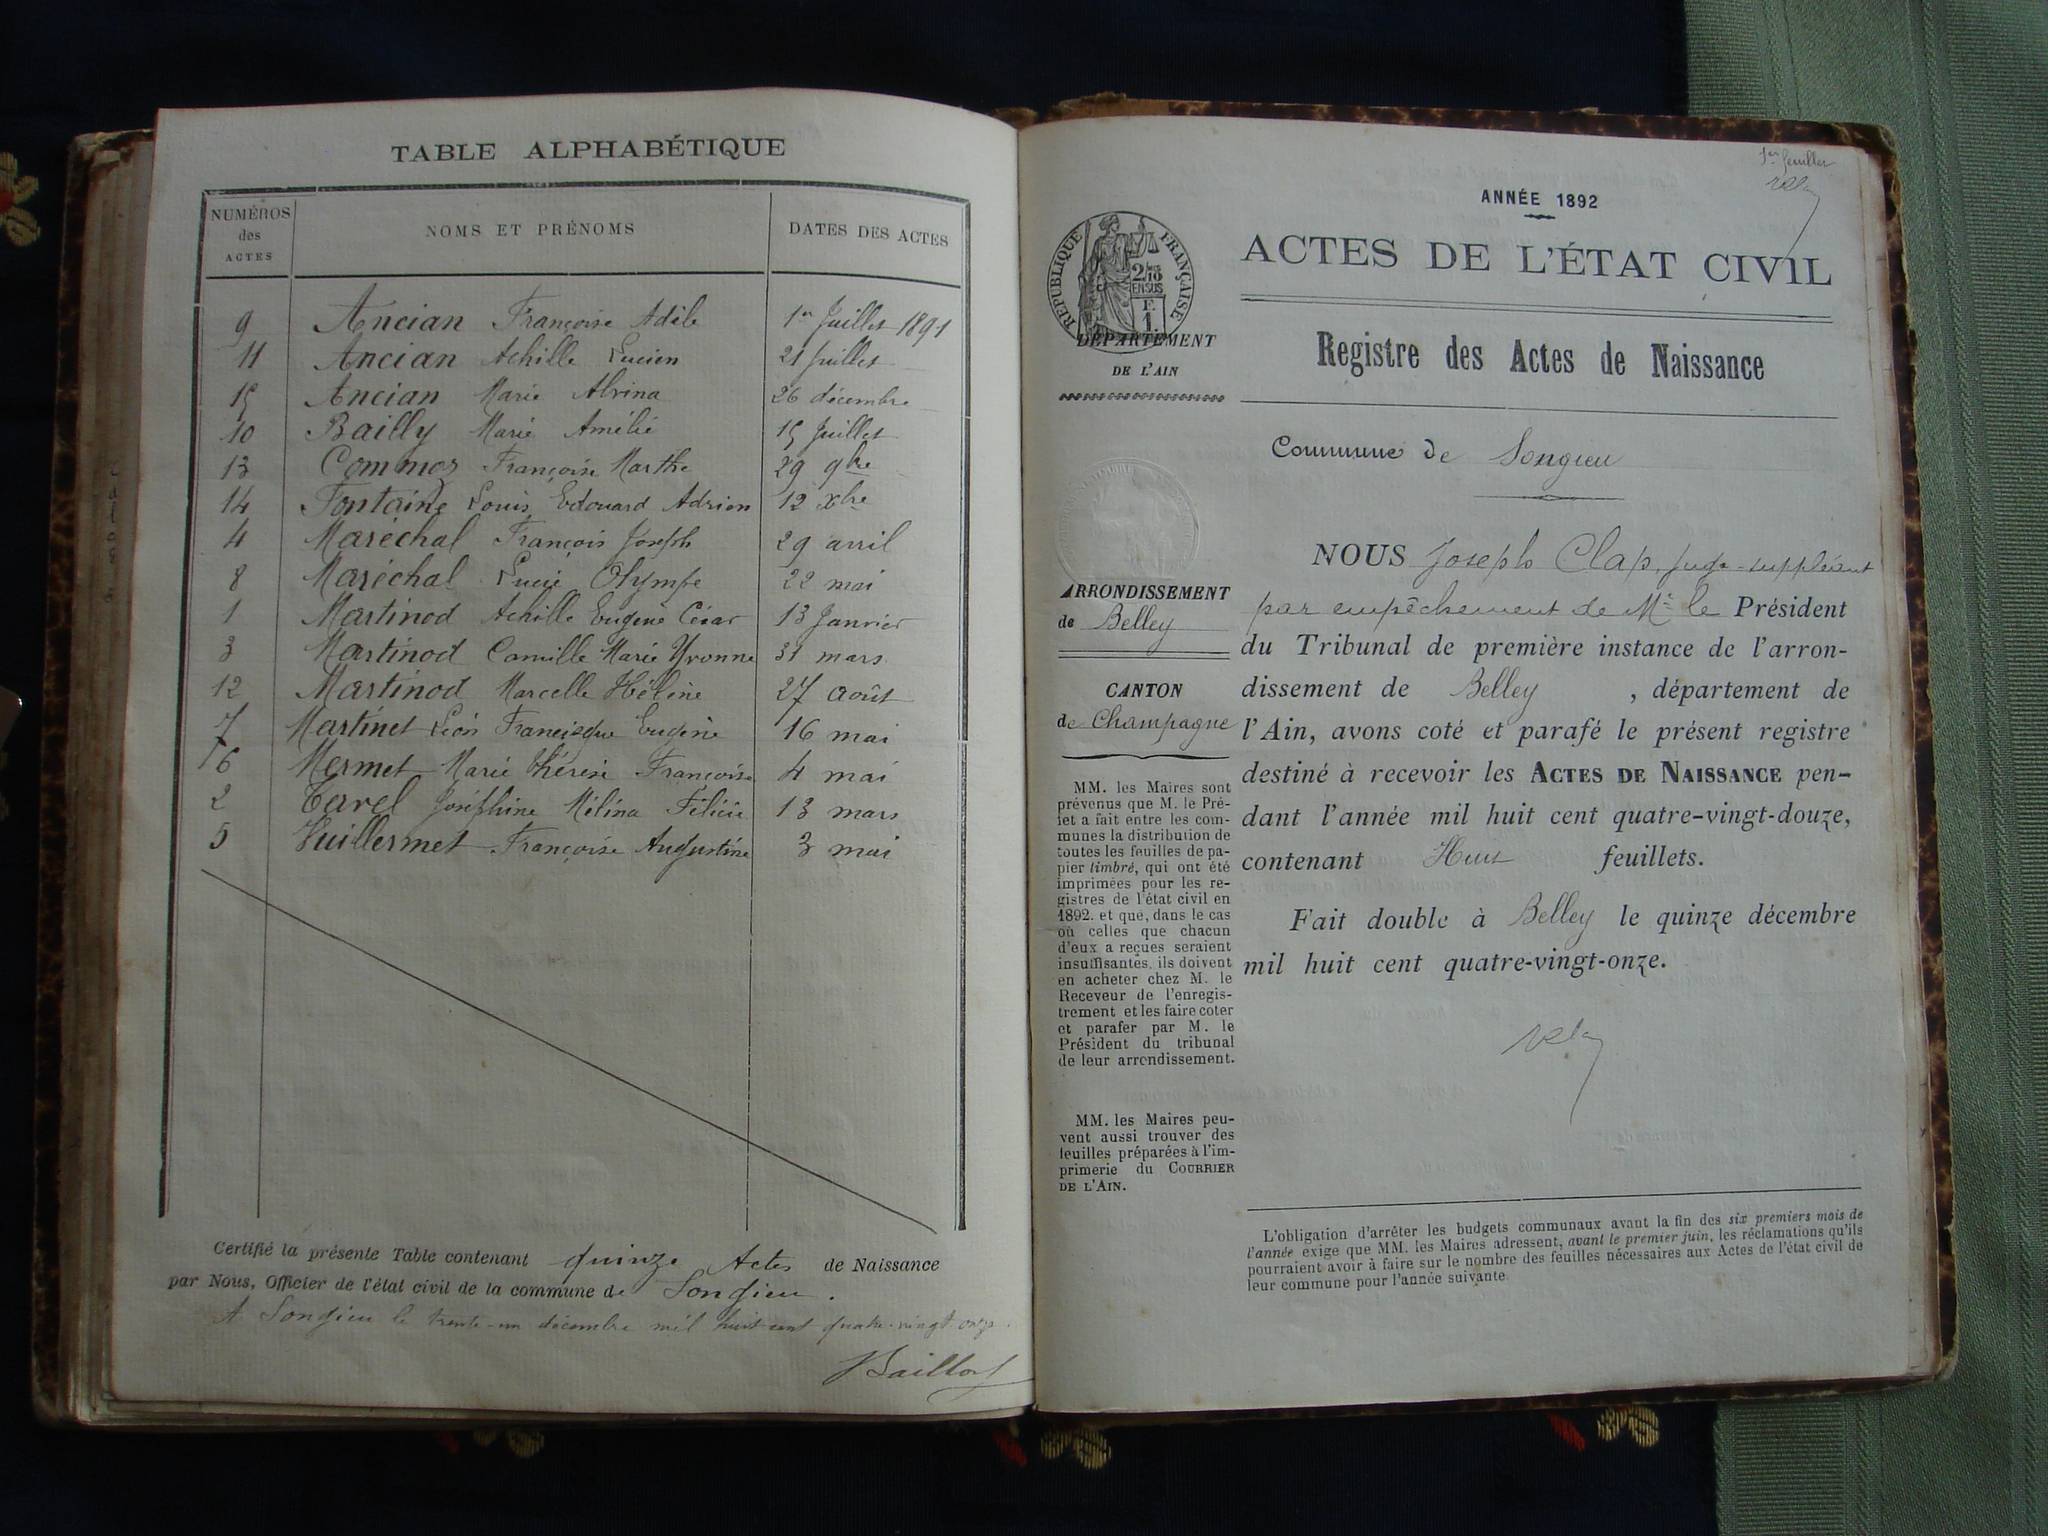 TABLE ALPHABÉTIQUE
NUMÉROS des ACTES NOMS ET PRÉNOMS DATES DES ACTES
9 Ancian Françoise Adèle 1er Juillet 1891
11 Ancian Achille Lucien 21 Juillet
15 Ancian Marie Alvina 26 décembre
10 Bailly Marie Amélie 15 Juillet
13 Commoz Françoise Marthe 29 9bre
14 Fontaine Louis Edouard Adrien 12 xbre
4 Maréchal François Joseph 29 avril
8 Maréchal Lucie Olympe 22 mai
1 Martinod Achille Eugène César 13 Janvier
3 Martinod Camille Marie Yvonne 31 mars
12 Martinod Marcelle Hélène 27 août
7 Martinet Léon Francisque Eugène 16 mai
6 Mermet Marie Thérèse Françoise 4 mai
2 Tavel Joséphine Mélina Félicie 13 mars
5 Vuillermet Françoise Augustine 3 mai
Certifié la présente Table contenant quinze Actes de Naissance
par Nous, Officier de l'état civil de la commune de Songieu.
A Songieu le trente-un décembre mil huit cent quatre-vingt onze.
1er feuillet
ANNÉE 1892
ACTES DE L'ÉTAT CIVIL
Registre des Actes de Naissance
RÉPUBLIQUE FRANÇAISE
2/10 EN SUS
F.
1.
DÉPARTEMENT
DE L'AIN
Commune de Songieu
ARRONDISSEMENT
de Belley
CANTON
de Champagne
MM. les Maires sont
prévenus que M. le Pré-
fet a fait entre les com-
munes la distribution de
toutes les feuilles de pa-
pier timbré, qui ont été
imprimées pour les re-
gistres de l'état civil en
1892. et que, dans le cas
où celles que chacun
d'eux a reçues seraient
insuffisantes, ils doivent
en acheter chez M. le
Receveur de l'enregis-
trement et les faire coter
et parafer par M. le
Président du tribunal
de leur arrondissement.
MM. les Maires peu-
vent aussi trouver des
feuilles préparées à l'im-
primerie du COURRIER
DE L'AIN.
NOUS Joseph Clap, Juge-suppléant
par empêchement de Mr le Président
du Tribunal de première instance de l'arron-
dissement de Belley, département de
l'Ain, avons coté et parafé le présent registre
destiné à recevoir les ACTES DE NAISSANCE pen-
dant l'année mil huit cent quatre-vingt-douze,
contenant Huit feuillets.
Fait double à Belley le quinze décembre
mil huit cent quatre-vingt-onze.
L'obligation d'arrêter les budgets communaux avant la fin des six premiers mois de
l'année exige que MM. les Maires adressent, avant le premier juin, les réclamations qu'ils
pourraient avoir à faire sur le nombre des feuilles nécessaires aux Actes de l'état civil de
leur commune pour l'année suivante.